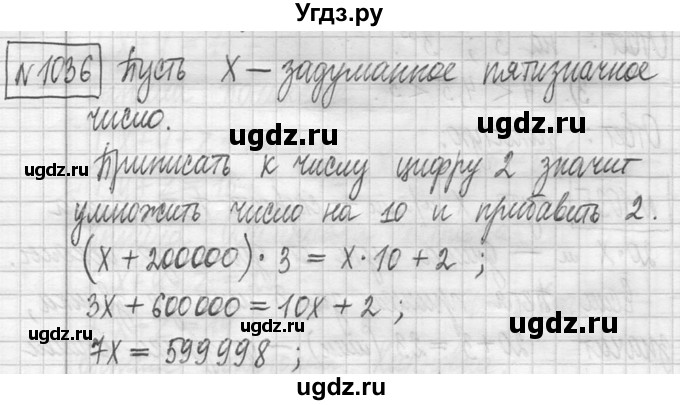 Угдз.ру
№1036 Пусть X — задуманное пятизначное
число.
ugdz.ru ugdz.ru
ugdz.ru
Приписать к числу цифру 2 значит
умножить число на 10 и прибавить 2.
ugdz.ru ugdz.ru
(X + 200000) · 3 = X · 10 + 2 ;
ugdz.ru
3X + 600000 = 10X + 2 ;
ugdz.ru ugdz.ru ugdz.ru
7X = 599998 ;
ugdz.ru